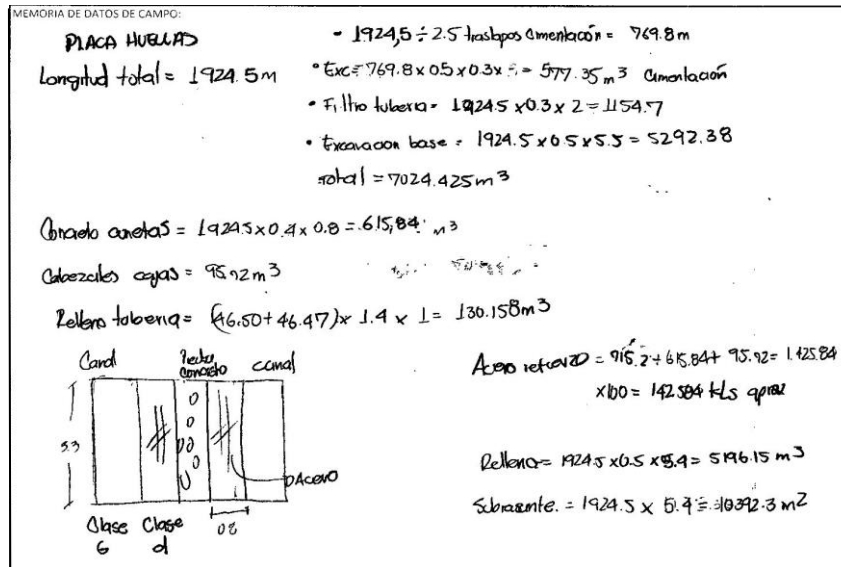 MEMORIA DE DATOS DE CAMPO:
PLACA HUELLAS
Longitud total = 1924.5 m
- 1924,5 ÷ 2.5 traslapos cimentación = 769.8 m
• Exc = 769.8 x 0.5 x 0.3 x = 577.35 m3 cimentación
• Filtro tuberia = 1924.5 x 0.3 x 2 = 1154.7
• Excavacion base = 1924.5 x 0.5 x 5.5 = 5292.38
total = 7024.425 m3
Concreto cunetas = 1924.5 x 0.4 x 0.8 = 615,84 m3
Cabezales cajas = 95.92 m3
Relleno tuberia = (46.50 + 46.47) x 1.4 x 1 = 130.158 m3
Canal
Piedra concreto
canal
5.3
Acero
Clase
Clase d
Acero refuerzo = 915.2 + 615.84 + 95.92 = 1.425.84
x100 = 142.584 kls aprox
Relleno = 1924.5 x 0.5 x 5.4 = 5196.15 m3
Subrasante. = 1924.5 x 5.4 = 10392.3 m2